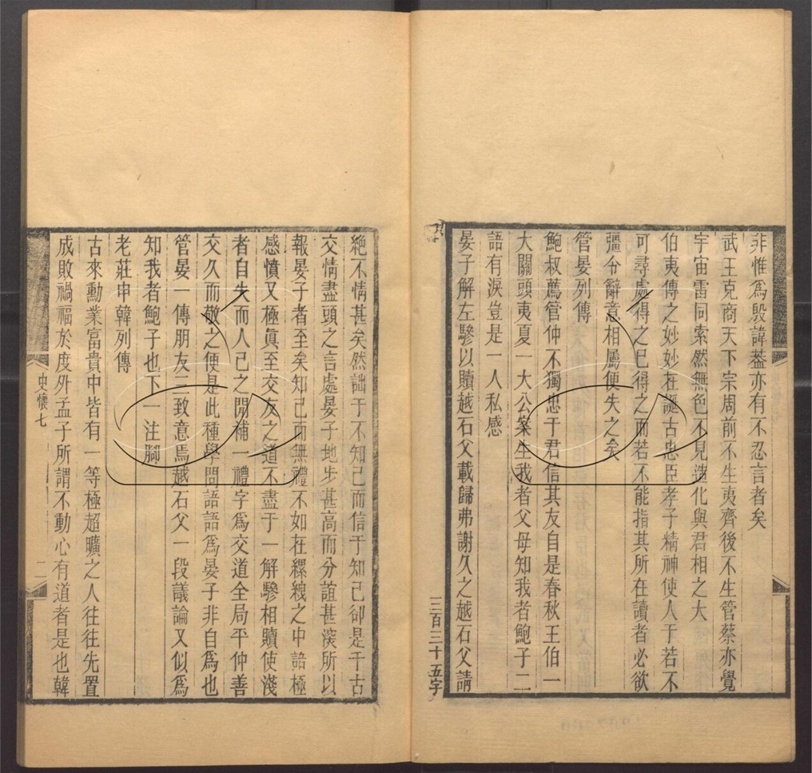 非惟為殷諱葢亦有不忍言者矣
武王克商天下宗周前不生夷齊後不生管蔡亦覺
宇宙雷同索然無色不見造化與君相之大
伯夷傳之妙妙在誕古忠臣孝子精神使人于若不
可尋處得之已得之而若不能指其所在讀者必欲
彊分辭意相屬便失之矣
管晏列傳
鮑叔薦管仲不獨忠于君信其友自是春秋王伯一
大關頭夷夏一大公案生我者父母知我者鮑子二
語有淚豈是一人私感
晏子解左驂以贖越石父載歸弗謝久之越石父請
三百三十五字
絶不情甚矣然詘于不知己而信于知己卻是千古
交情盡頭之言處晏子地步甚高而分誼甚深所以
報晏子者至矣知己而無禮不如在縲絏之中語極
感憤又極眞至交友之道不盡于一解驂相贖使淺
者自失而人己之閒補一禮字為交道全局平仲善
交久而敬之便是此種學問語語為晏子非自為也
管晏一傳朋友三致意焉越石父一段議論又似為
知我者鮑子也下一注腳
老莊申韓列傳
古來勳業富貴中皆有一等極超曠之人往往先置
成敗禍福於度外孟子所謂不動心有道者是也韓
史懷七
二